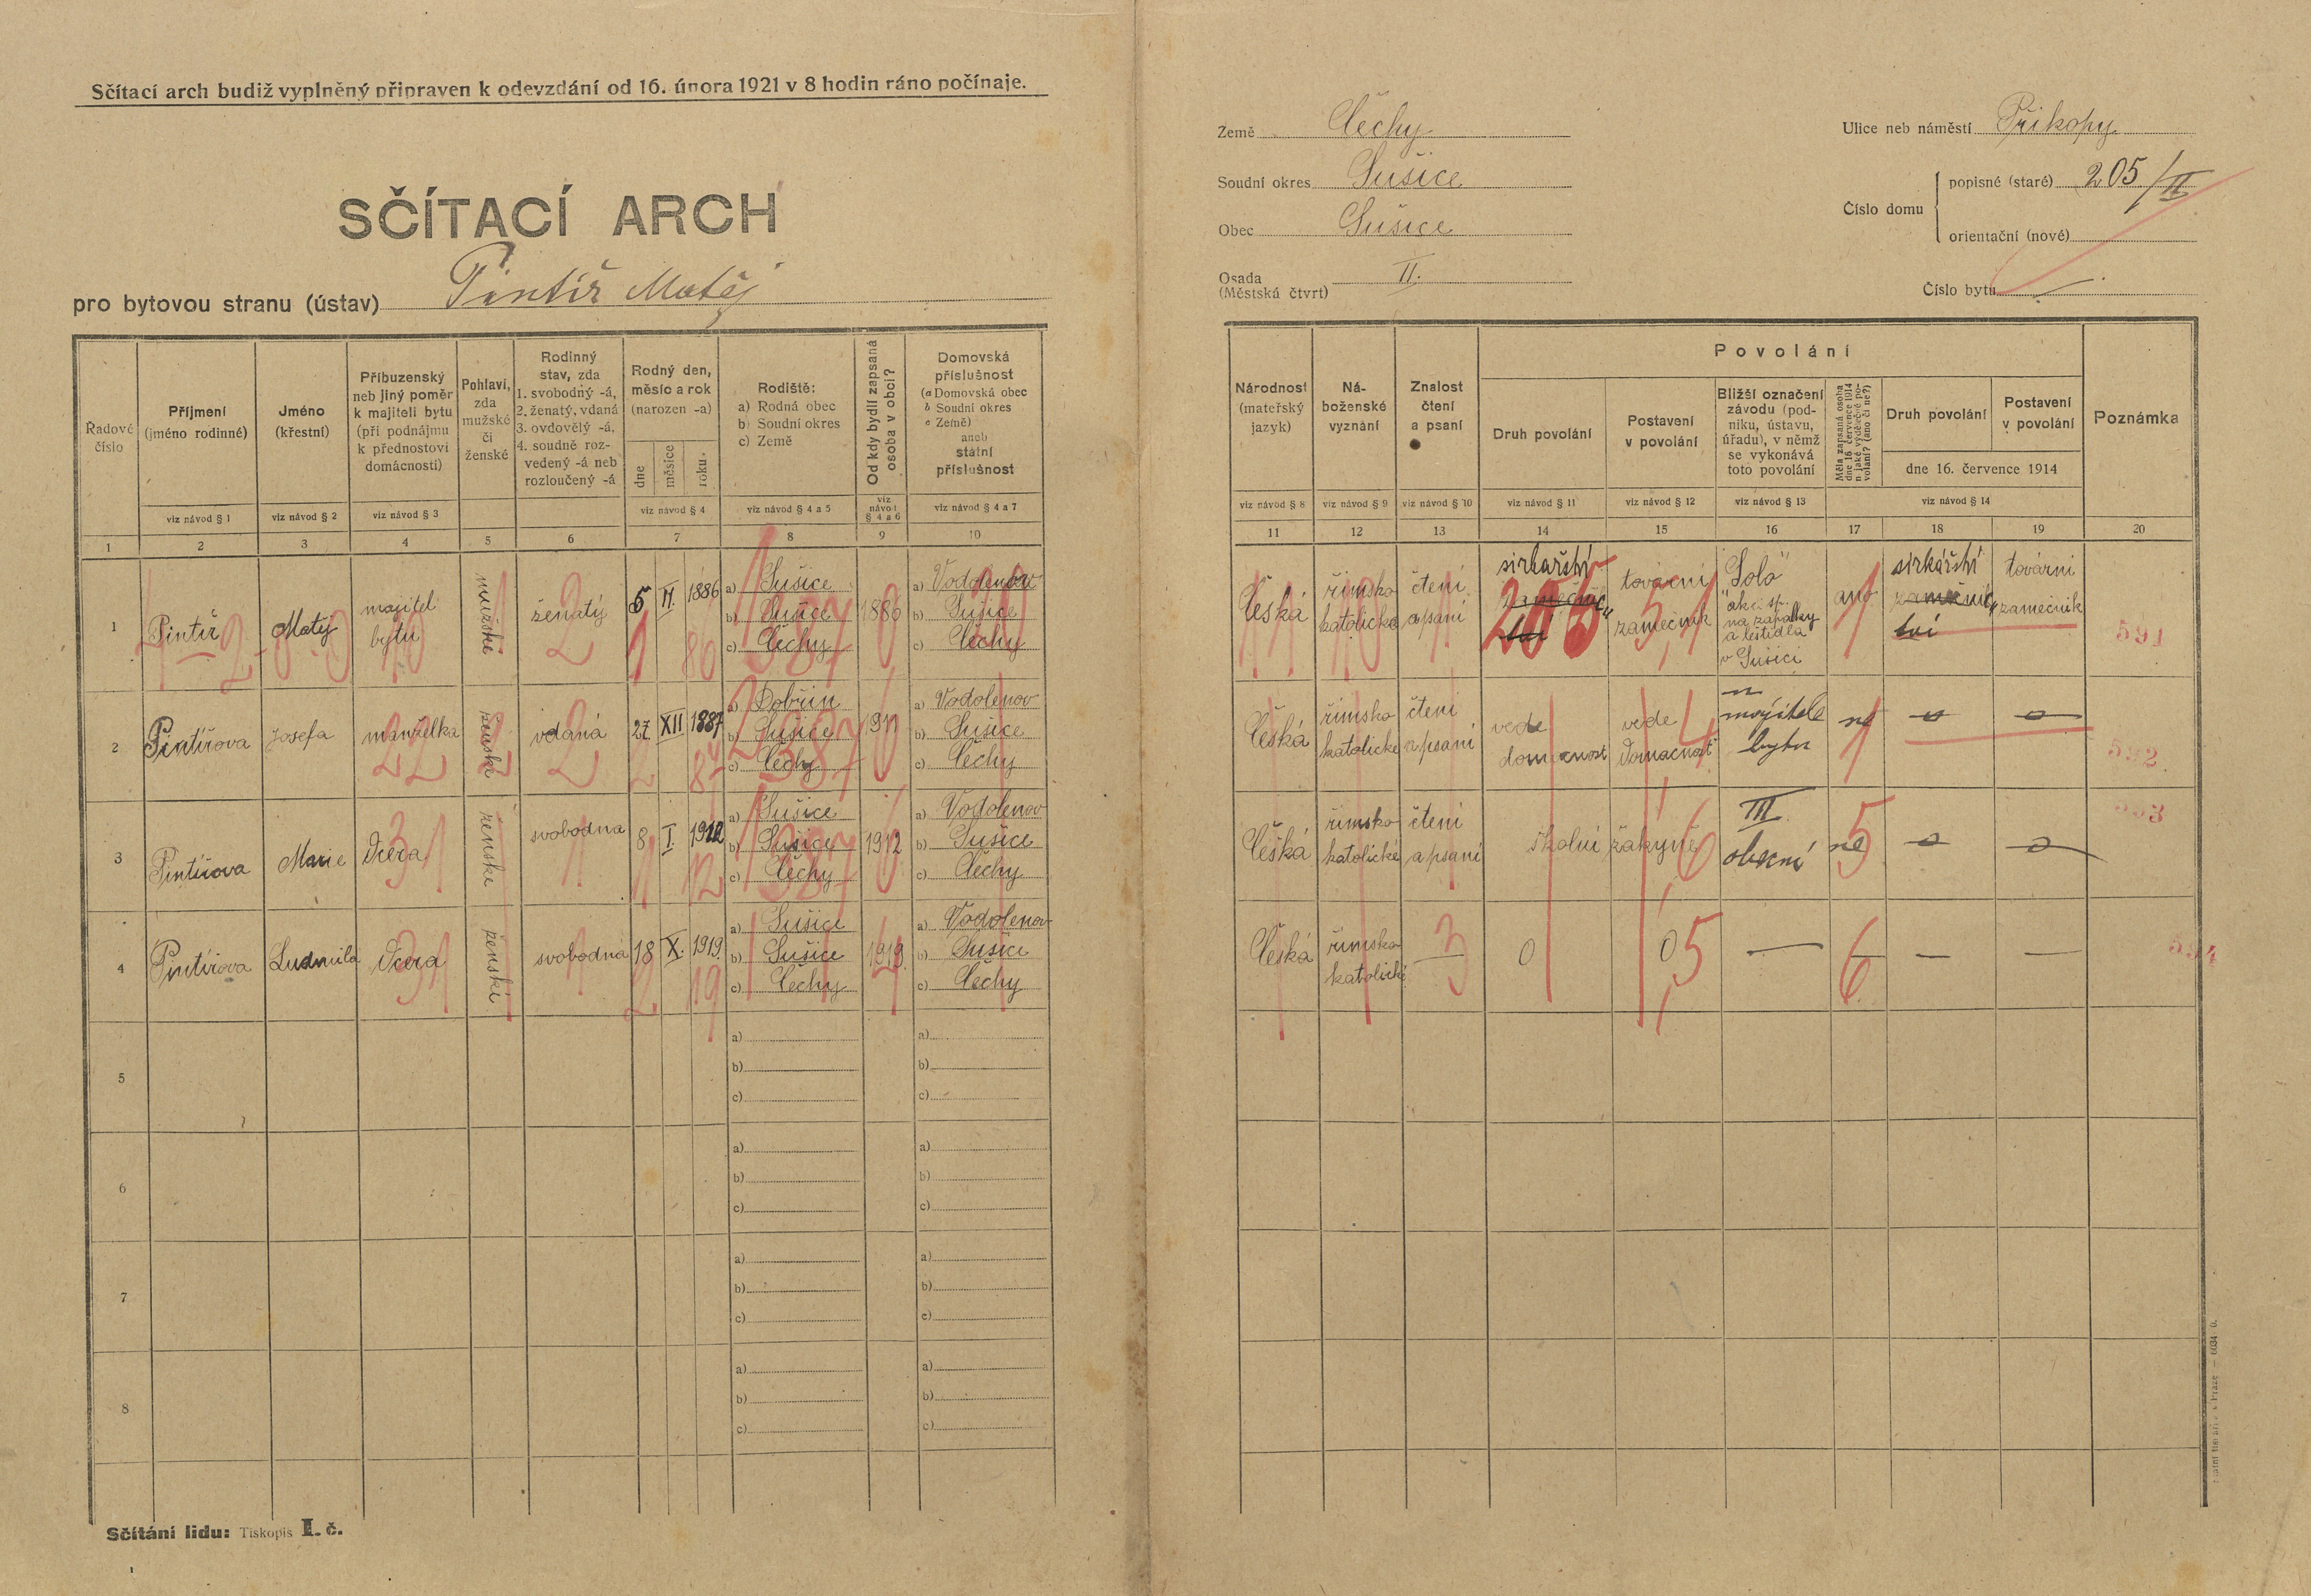 Sčítací arch budiž vyplněný připraven k odevzdání od 16. února 1921 v 8 hodin ráno počínaje.
SČÍTACÍ ARCH
pro bytovou stranu (ústav) Pintíř Matěj
Země Čechy
Soudní okres Sušice
Obec Sušice
Osada
(Městská čtvrt) II.
Ulice neb náměstí Příkopy
Číslo domu
popisné (staré) 205/II
orientační (nové)
Číslo bytu
Řadové číslo
Příjmení
(jméno rodinné)
viz návod § 1
Jméno
(křestní)
viz návod § 2
Příbuzenský
neb jiný poměr
k majiteli bytu
(při podnájmu
k přednostovi
domácnosti)
viz návod § 3
Pohlaví,
zda
mužské
či
ženské
Rodinný
stav, zda
1. svobodný -á,
2. ženatý, vdaná
3. ovdovělý -á,
4. soudně roz-
vedený -á neb
rozloučený -á
Rodný den,
měsíc a rok
(narozen -a)
dne
měsíce
roku
viz návod § 4
Rodiště:
a) Rodná obec
b) Soudní okres
c) Země
viz návod § 4 a 5
Od kdy bydlí zapsaná
osoba v obci?
viz
návod
§ 4 a 6
Domovská
příslušnost
(a Domovská obec
b Soudní okres
c Země)
aneb
státní
příslušnost
viz návod § 4 a 7
1 2 3 4 5 6 7 8 9 10
Národnost
(mateřský
jazyk)
viz návod § 8
Ná-
boženské
vyznání
viz návod § 9
Znalost
čtení
a psaní
viz návod § 10
Povolání
Druh povolání
viz návod § 11
Postavení
v povolání
viz návod § 12
Bližší označení
závodu (pod-
niku, ústavu,
úřadu), v němž
se vykonává
toto povolání
viz návod § 13
Měla zapsaná osoba
dne 16 července 1914
nějaké výdělečné po-
volání? (ano či ne?)
Druh povolání
Postavení
v povolání
dne 16. července 1914
viz návod § 14
Poznámka
11 12 13 14 15 16 17 18 19 20
1 Pintíř Matěj
majitel
bytu
mužské
ženatý
5 II. 1886
a) Sušice
b) Sušice
c) Čechy
1886
a) Vodolenov
b) Sušice
c) Čechy
Česká
římsko
katolické
čtení
a psaní
sirkařství
zámečnic
tví
205
tovární
zámečník
"Solo"
akc. sp.
na zápalky
a leštidla
v Sušici
ano
sirkářství
zámečnic
tví
tovární
zámečník
591
2 Pintířova Josefa
manželka
ženské
vdaná
27. XII 1887
a) Dobřín
b) Sušice
c) Čechy
1911
a) Vodolenov
b) Sušice
c) Čechy
Česká
římsko
katolické
čtení
a psaní
vede
domácnost
vede
domácnost
majitele
bytu
ne
592
3 Pintířova Marie
dcera
ženské
svobodna
8 I. 1912
a) Sušice
b) Sušice
c) Čechy
1912
a) Vodolenov
b) Sušice
c) Čechy
Česká
římsko
katolické
čtení
a psaní
školní žákyně
III
obecní
ne
593
4 Pintířova Ludmila
dcera
ženské
svobodna
18 X. 1919
a) Sušice
b) Sušice
c) Čechy
1919
a) Vodolenov
b) Sušice
c) Čechy
Česká
římsko
katolické
0
0
594
5
a)
b)
c)
a)
b)
c)
6
a)
b)
c)
a)
b)
c)
7
a)
b)
c)
a)
b)
c)
8
a)
b)
c)
a)
b)
c)
Sčítání lidu: Tiskopis I. č.